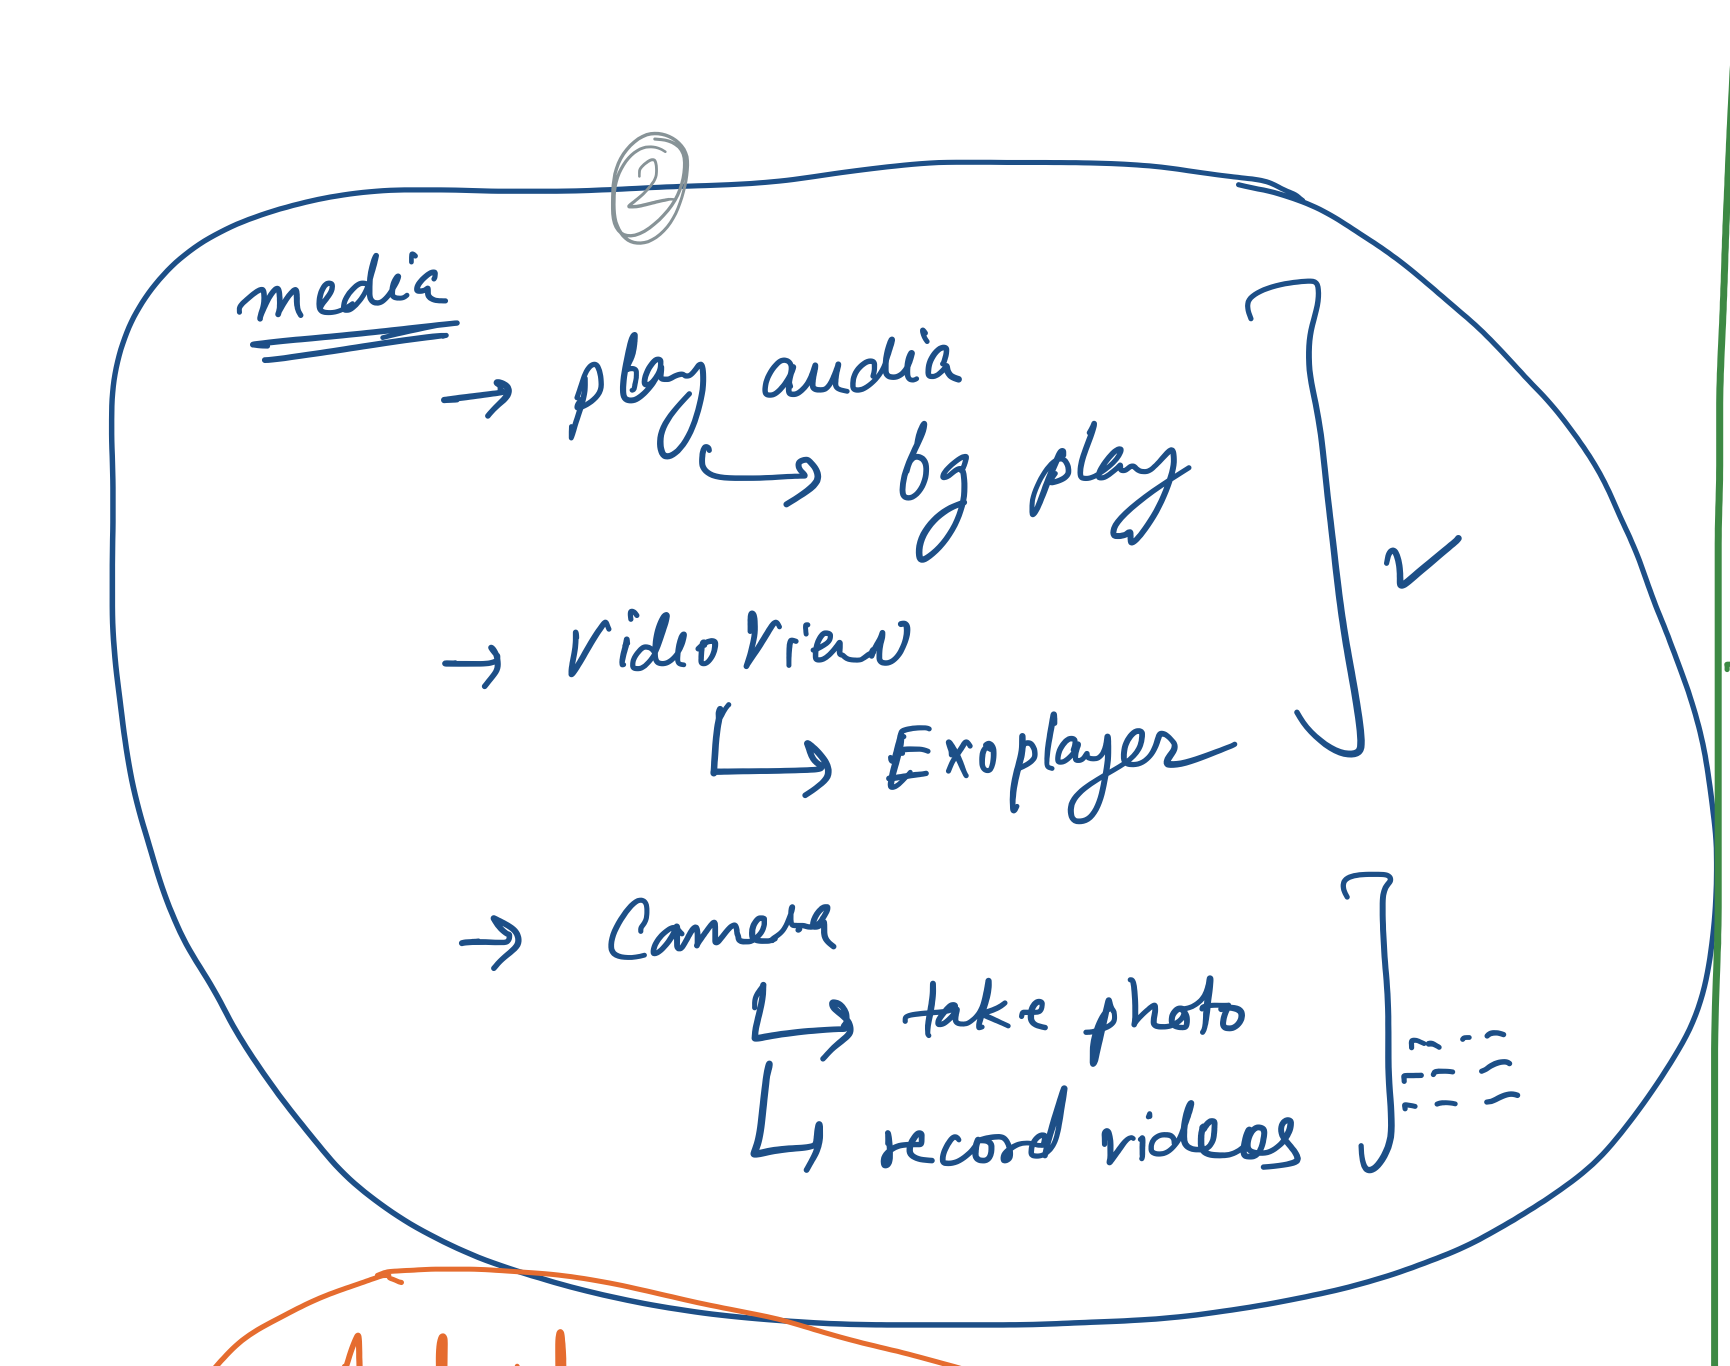 2
media
→ play audia
↳ bg play
→ VideoView
↳ Exoplayer
→ Camera
↳ take photo
↳ record videos